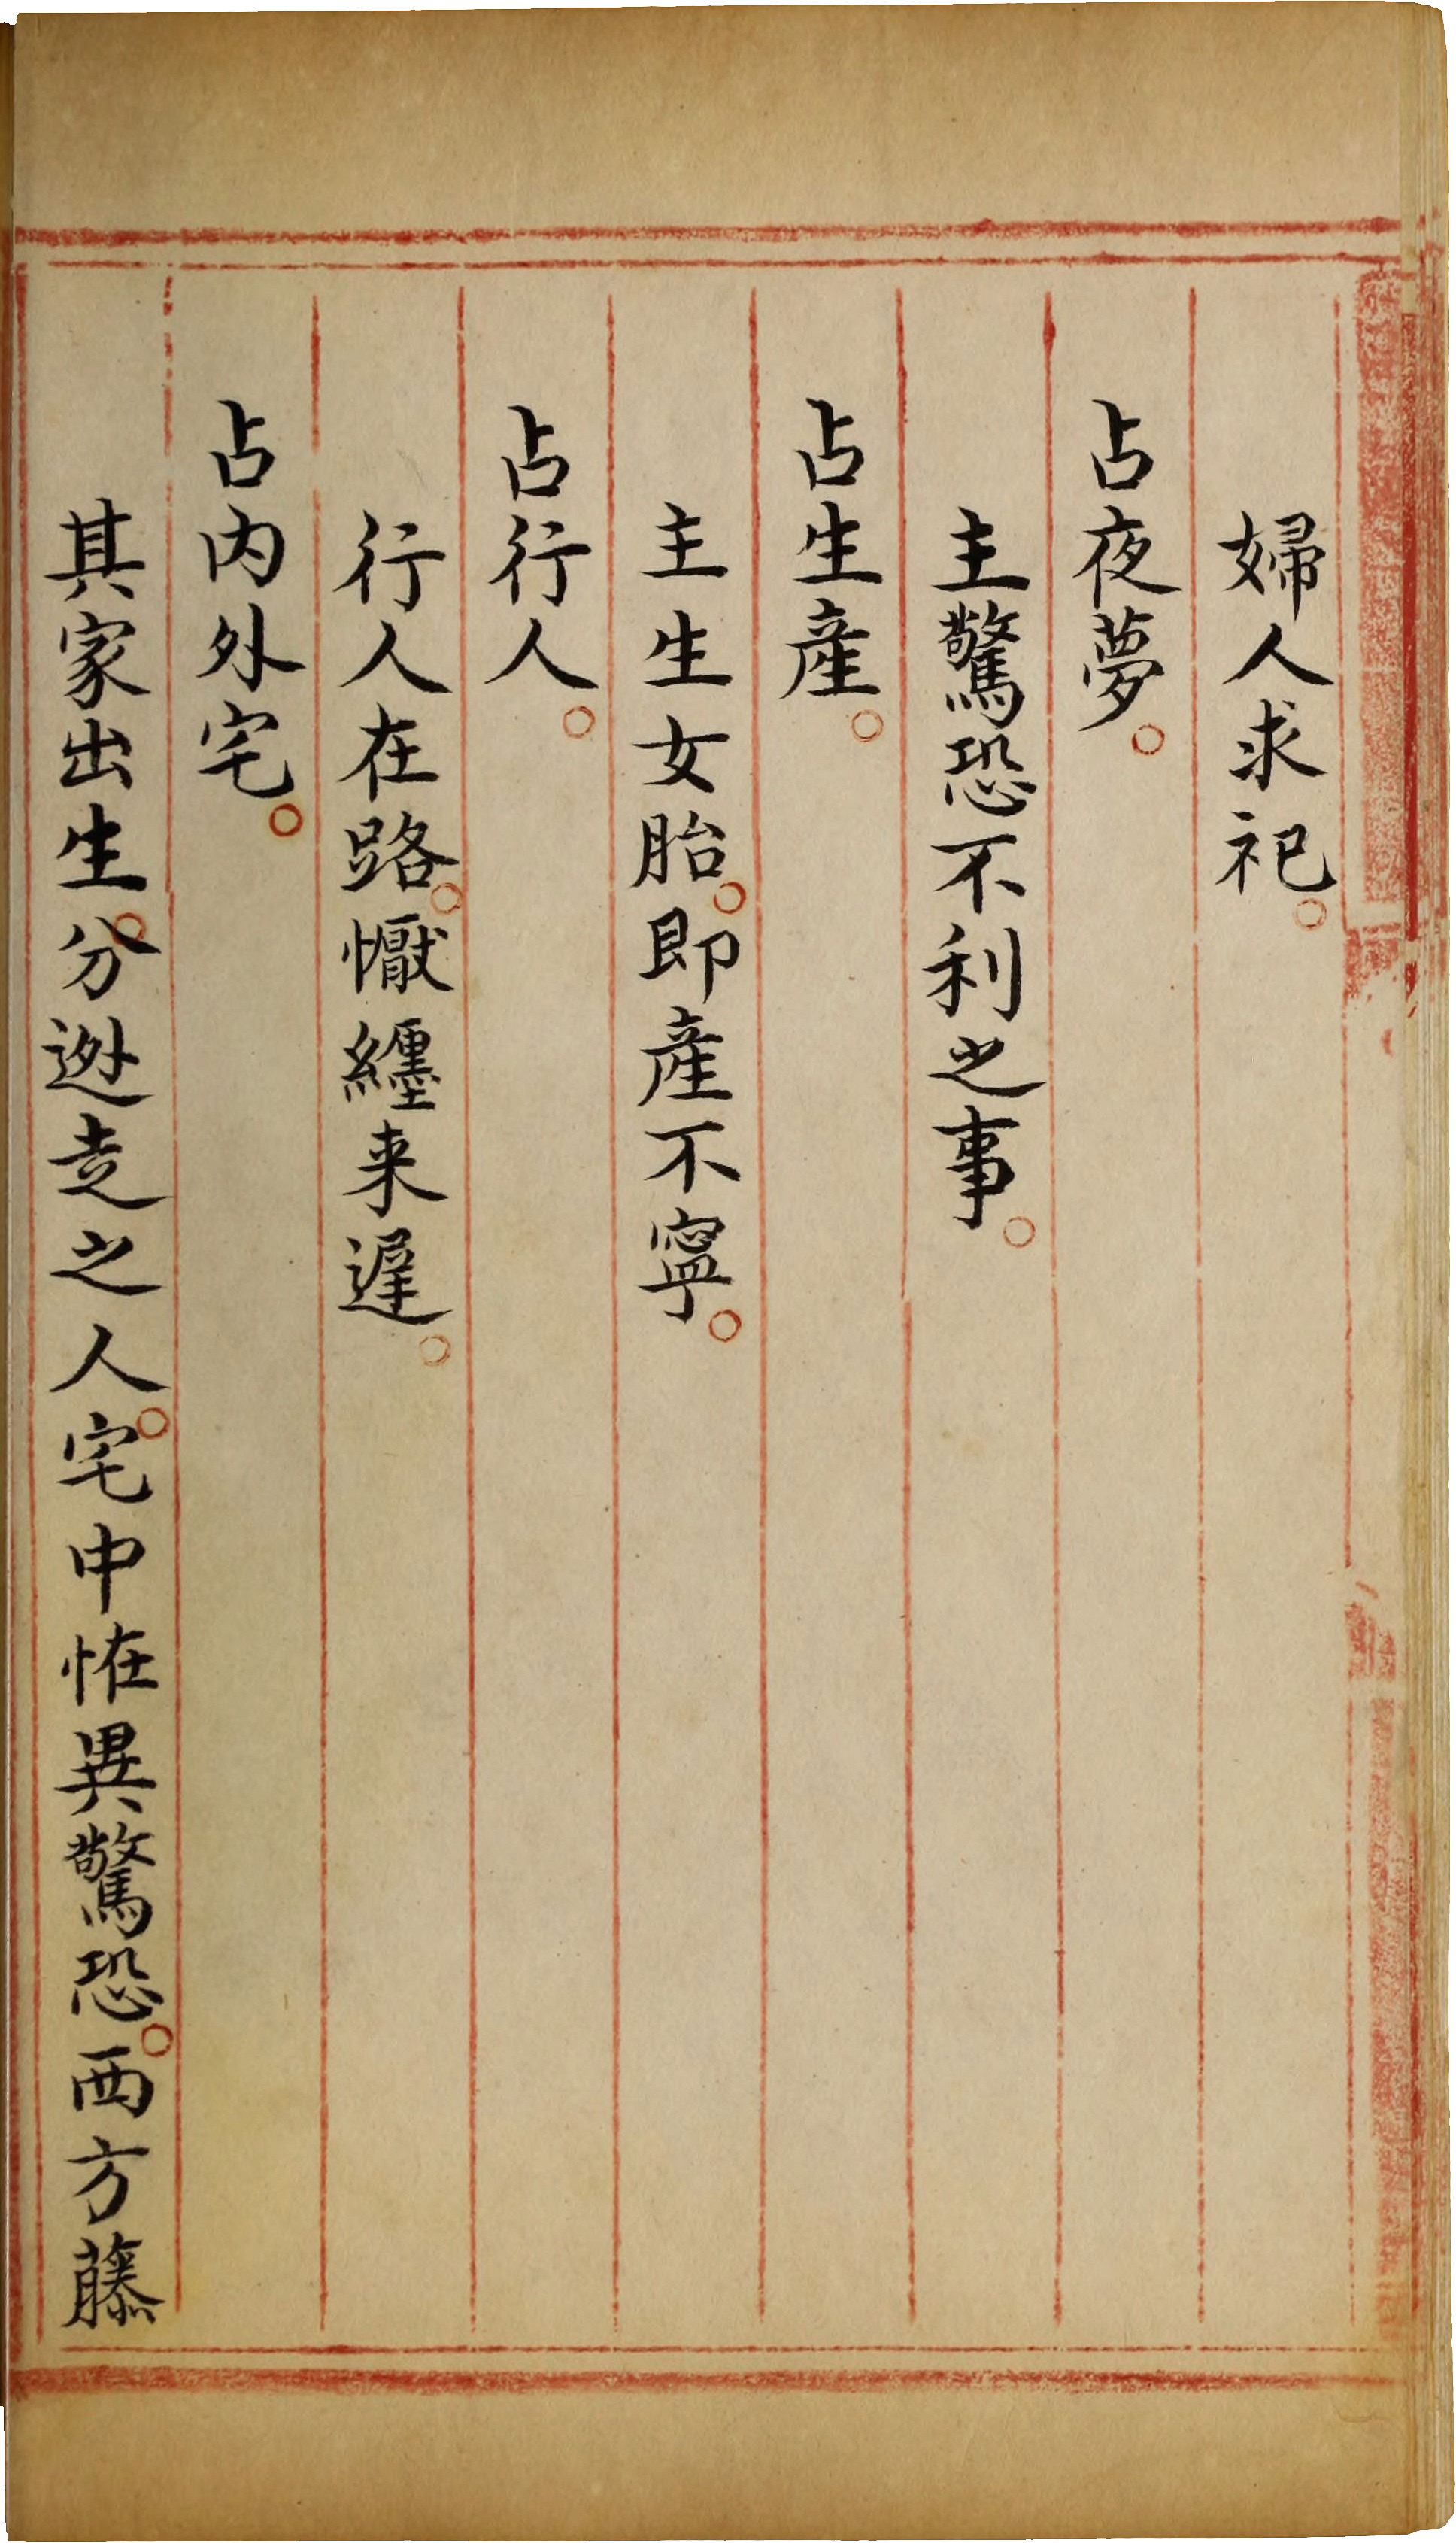 婦人求祀。
占夜夢。
主驚恐不利之事。
占生產。
主生女胎。即產不寧。
占行人。
行人在路。懨纏来遲。
占内外宅。
其家出生。分逊走之人。宅中恠異驚恐。西方藤